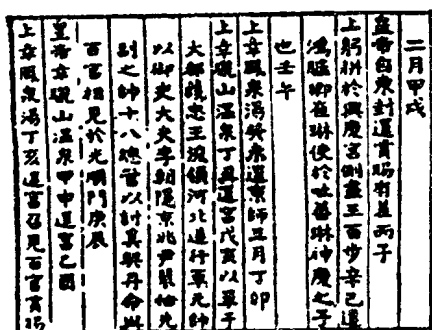 二月甲戌
皇帝自東封還賞賜有差丙子
上躬耕於興慶宮側盡三百步辛巳遣
鴻臚卿崔琳使於吐蕃琳神慶之子
也壬午
上幸鳳泉湯癸未還京師三月丁卯
上幸驪山溫泉丁丑還宮戊寅以單于
大都護忠王浚領河北道行軍元帥
以御史大夫李朝隱京兆尹裴伷先
副之帥十八總管以討奚契丹命與
百官相見於光順門庚辰
皇帝幸驪山溫泉甲申還宮己酉
上幸鳳泉湯丁亥還宮召見百官賞賜